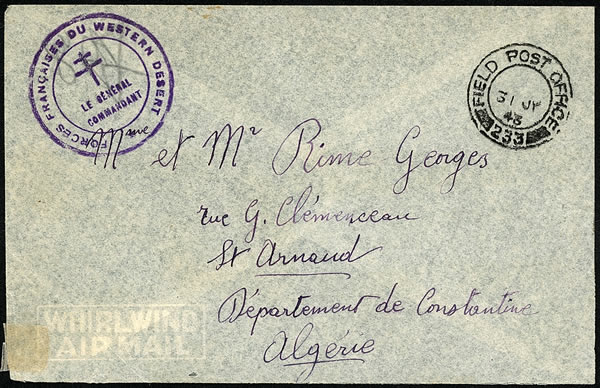 FORCES FRANÇAISES DU WESTERN DESERT
LE GÉNÉRAL
COMMANDANT
FIELD POST OFFICE
31
43
233
Mme et Mr Rime Georges
rue G. Clémenceau
St Arnaud
Département de Constantine
Algérie
WHIRLWIND
AIR MAIL